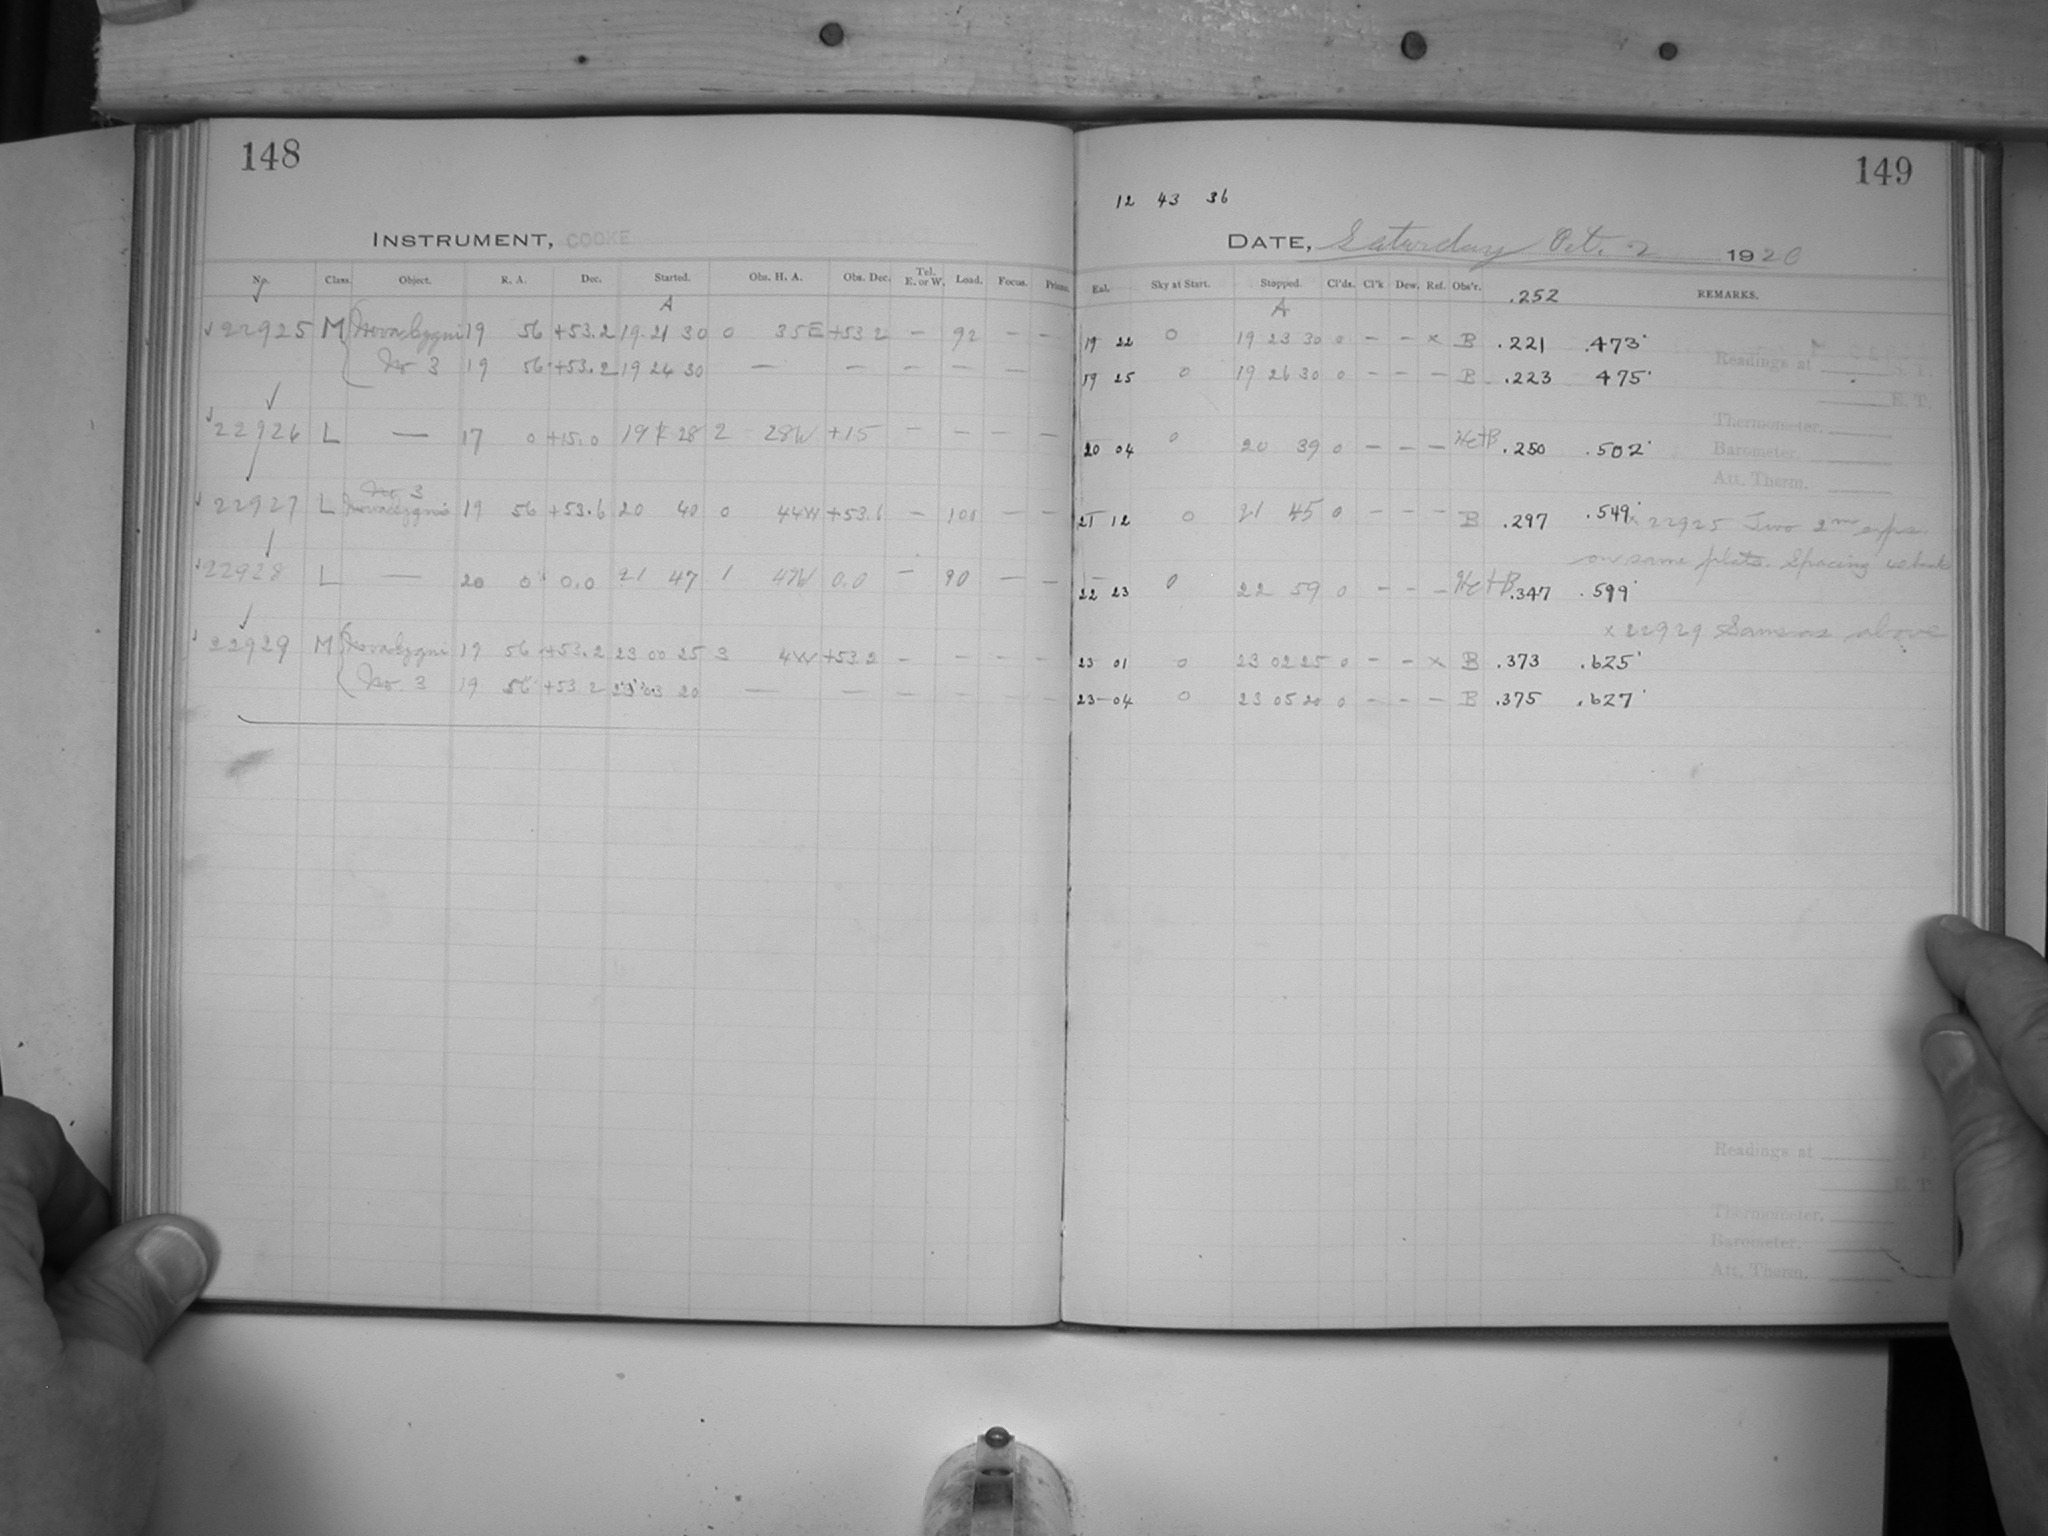 148
INSTRUMENT, COOKE
No. Class. Object. R. A. Dec. Started. Obs. H. A. Obs. Dec. Tel. E. or W. Load. Focus. Prisms.
A
22925 M Nova Cygni 19 56 +53.2 19 21 30 0 35E +53 2 — 92 — —
No 3 19 56 +53.2 19 24 30 — — — — —
22926 L — 17 0 +15.0 19 28 2 28W +15 — — — —
No 3
22927 L Nova Cygni 19 56 +53.6 20 40 0 44W +53.6 — 100 — —
22928 L — 20 0 0.0 21 47 1 49W 0.0 — 90 — —
22929 M Nova Cygni 19 56 +53.2 23 00 25 3 4W +53.2 — — — —
No. 3 19 56 +53 2 23 03 20 — — — — — —
149
12 43 36
DATE, Saturday Oct. 2 1920
Eal. Sky at Start. Stopped. Cl'ds. Cl'k Dew. Ref. Obs'r. .252 REMARKS.
A
19 22 0 19 23 30 0 — — x B .221 .473
19 25 0 19 26 30 0 — — — B .223 475
Readings at S. T.
E. T.
Thermometer,
20 04 0 20 39 0 — — — .250 .502
Barometer,
Att. Therm.
21 12 0 21 45 0 — — — B .297 .549
x 22925 Two 2m exps.
on same plate. Spacing
22 23 0 22 59 0 — — — .347 .599
x 22929 Same as above
23 01 0 23 02 25 0 — — x B .373 .625
23-04 0 23 05 20 0 — — — B .375 .627
Readings at S. T.
E. T.
Thermometer,
Barometer,
Att. Therm.